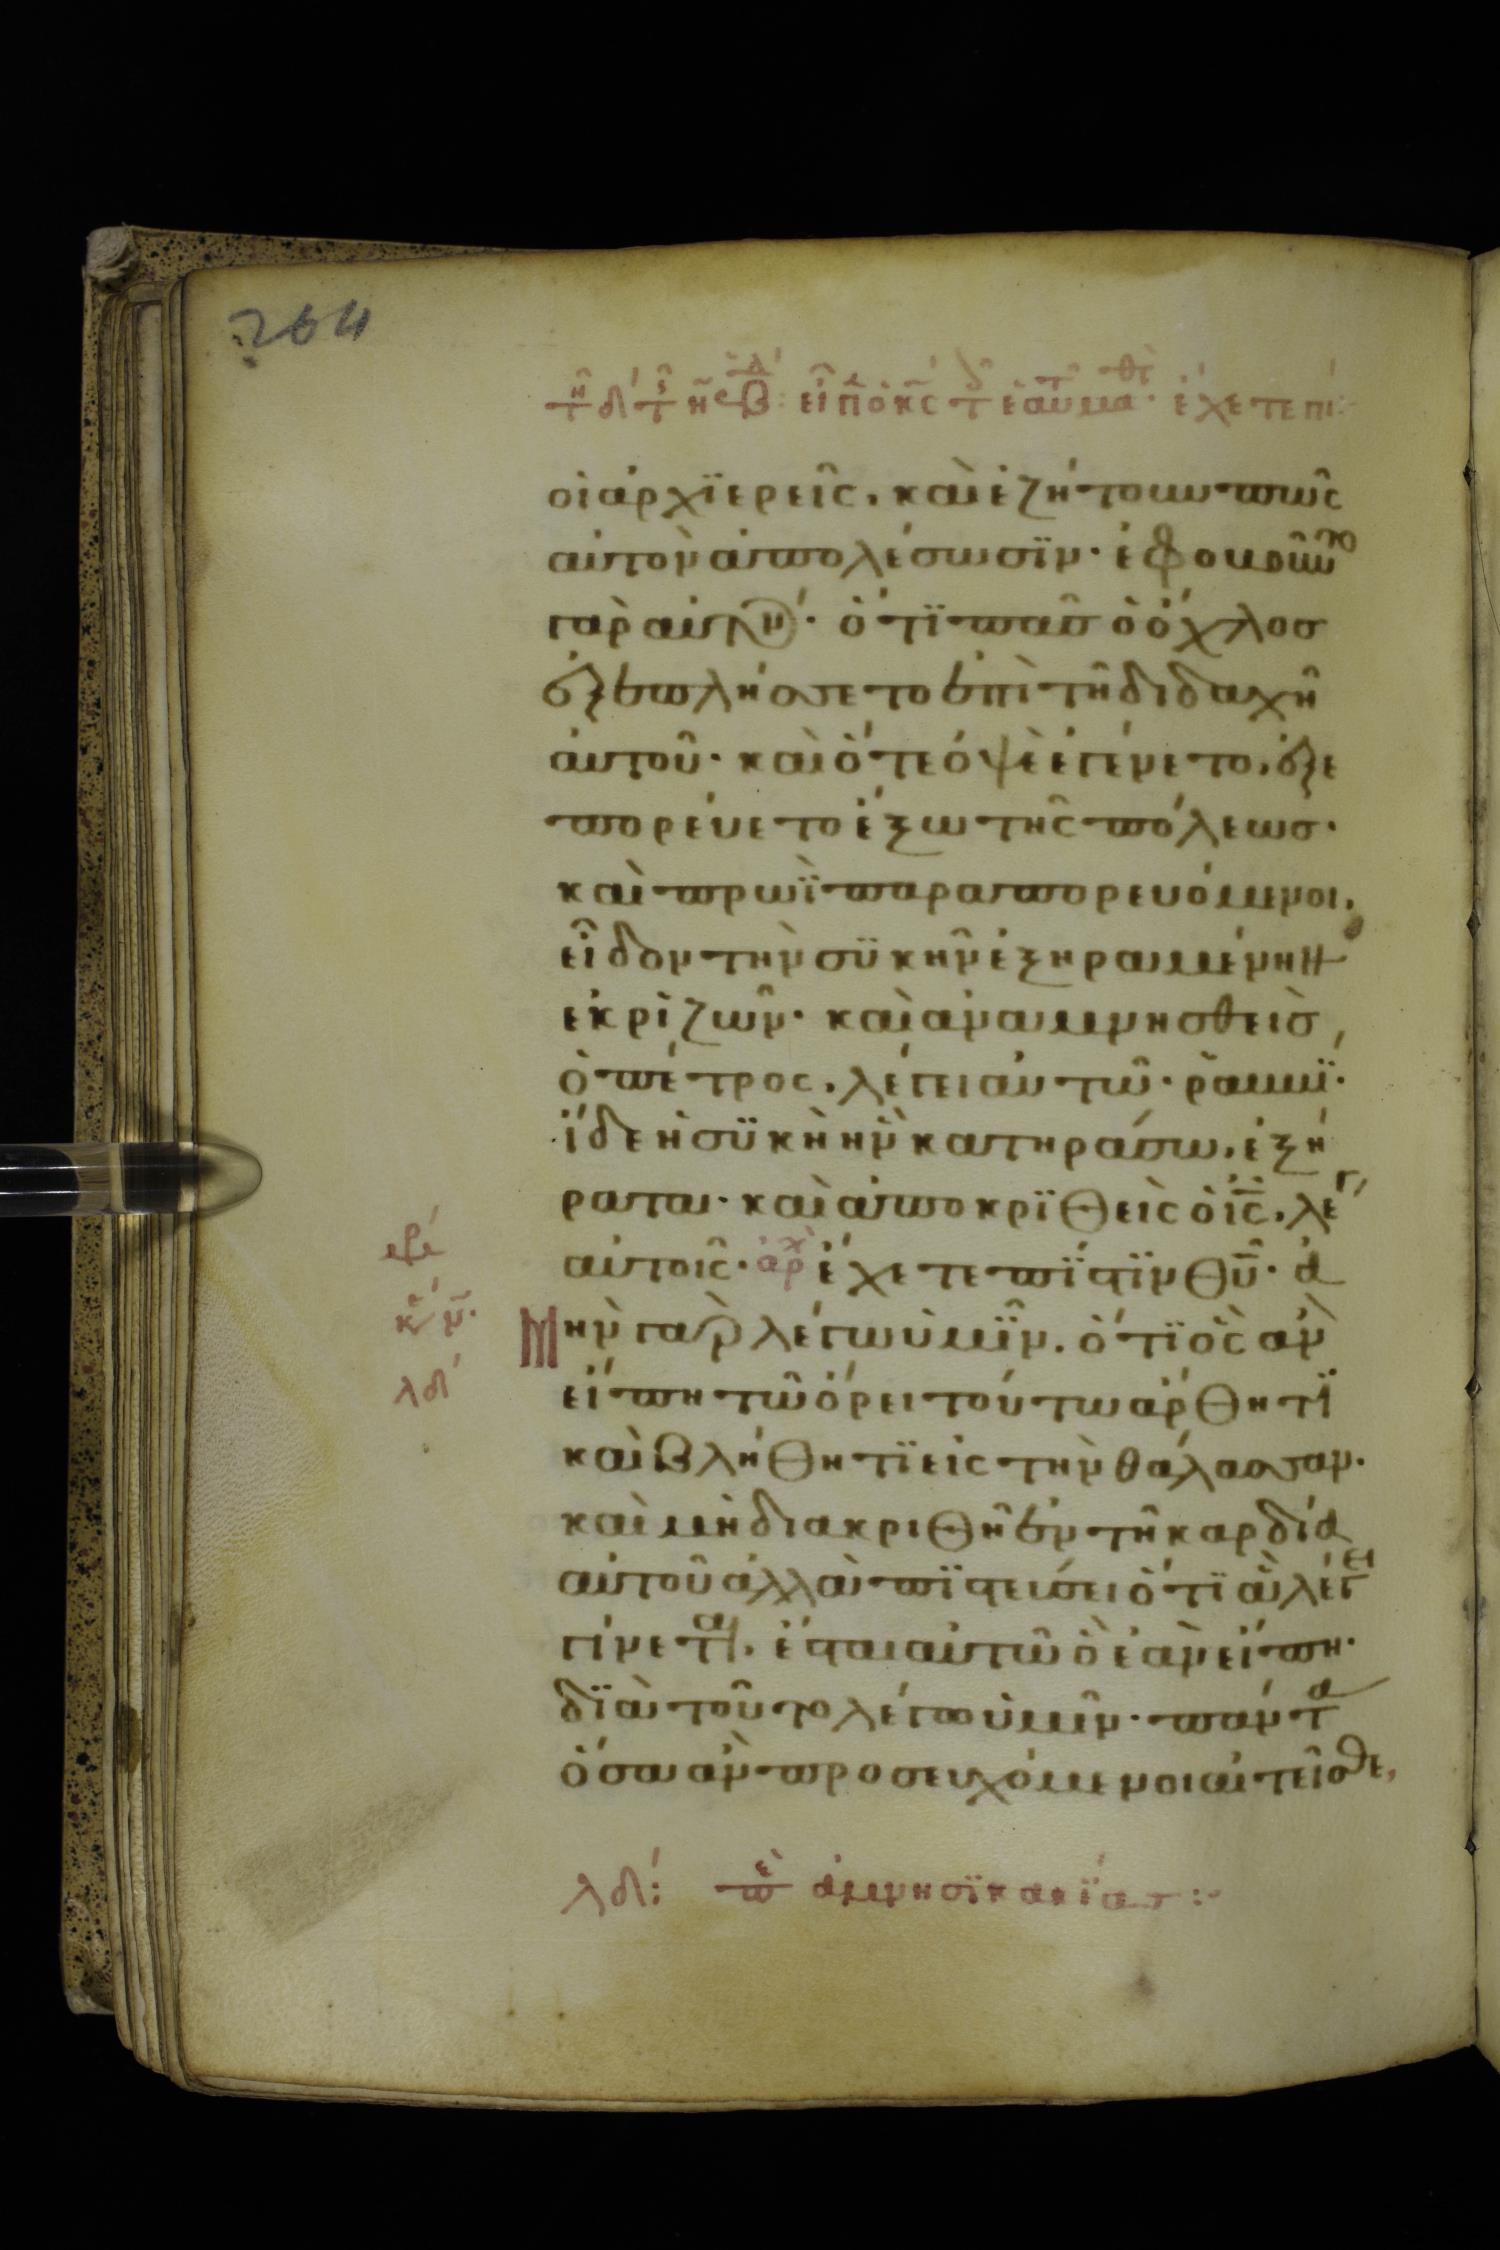 264
εἶπ ὁ κς τ ἑαυ μα· ἔχετε πι
οἱ ἀρχϊερεῖς. καὶ ἐζήτουν πῶς
αὐτὸν ἀπολέσωσϊν· ἐφοβοῦντο
γὰρ αὐτόν· ὅτϊ πᾶσ ὁ ὄχλοσ
ἐξεπλήσσετο ἐπὶ τῆ διδαχῆ
αὐτοῦ· καὶ ὅτε ὀψὲ ἐγένετο, ἐξε
πορεύετο ἔξω τῆς πόλεωσ·
καὶ πρωῒ παραπορευόμενοι.
εἶδον τὴν συκῆν ἐξηραμμένην
ἐκ ρϊζῶν· καὶ ἀναμνησθεὶσ
ὁ πέτρος, λέγει αὐτῶ· ῥαββΐ·
ἴδε ἡ συκὴ ἣν κατηράσω, ἐξή
ρανται· καὶ ἀποκρϊθεὶς ὁ ις, λέγ
αὐτοῖς· ἀρχ ἔχετε πίστϊν θυ· ἀ
Μὴν γὰρ λέγω ὑμῖν. ὅτϊ ὃς ἂν
εἴπη τῶ ὄρει τούτω ἄρθητϊ
καὶ βλήθητϊ εἰς τὴν θάλασσαν.
καὶ μὴ διακριθῆ ἐν τῆ καρδία
αὐτοῦ ἀλλὰ πϊστεύσει ὅτϊ ἃ λέγει
γίνεται. ἔσται αὐτῶ ὃ ἐὰν εἴπη·
δϊὰ τοῦτο λέγω ὑμῖν· πάντα
ὅσα ἂν προσευχόμενοι αἰτεῖσθε,
λδ: πε ἀμνησϊκακΐασ:
λδ